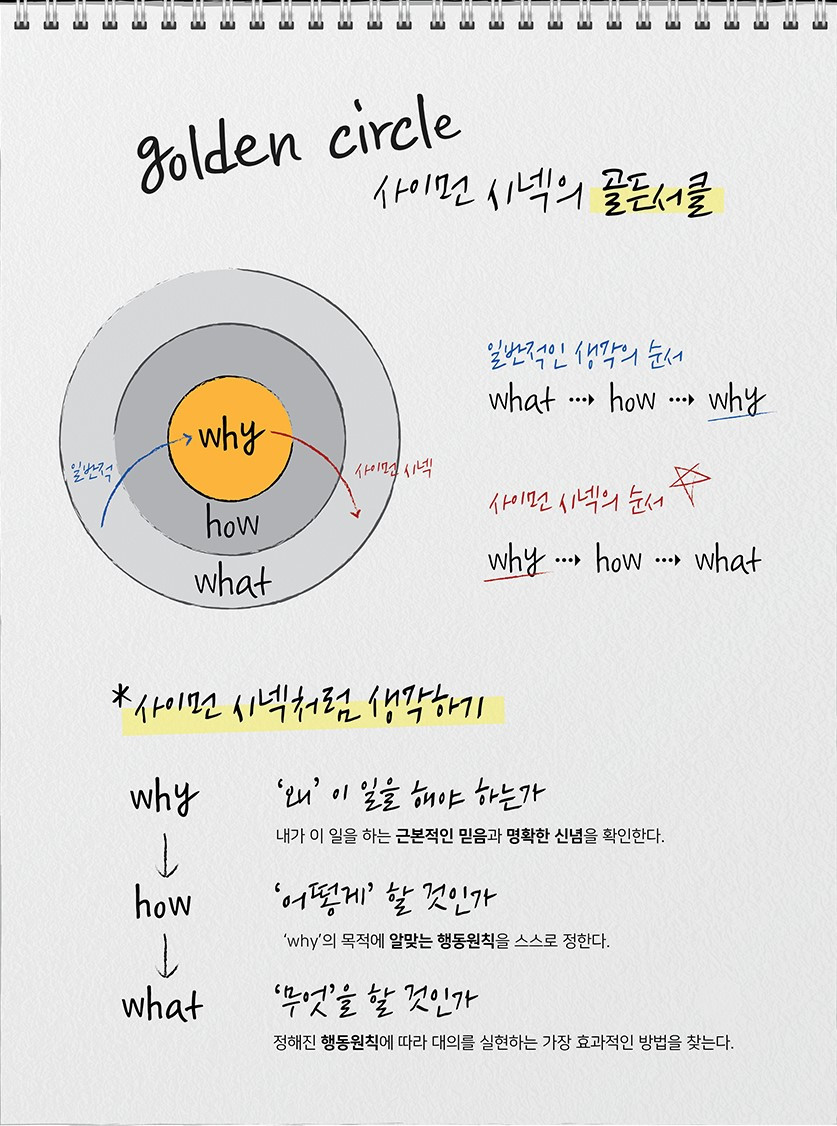 golden circle
사이먼 시넥의 골든서클
일반적인 생각의 순서
what ⋯▸ how ⋯▸ why
why
일반적
사이먼 시넥
how
what
사이먼 시넥의 순서
why ⋯▸ how ⋯▸ what
*사이먼 시넥처럼 생각하기
why
‘왜’ 이 일을 해야 하는가
내가 이 일을 하는 근본적인 믿음과 명확한 신념을 확인한다.
how
‘어떻게’ 할 것인가
‘why’의 목적에 알맞는 행동원칙을 스스로 정한다.
what
‘무엇’을 할 것인가
정해진 행동원칙에 따라 대의를 실현하는 가장 효과적인 방법을 찾는다.